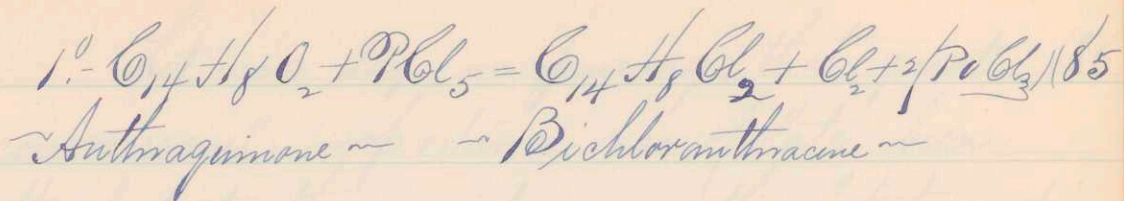 1º- C₁₄H₈O₂ + PCl₅ = C₁₄H₈Cl₂ + Cl₂ + 2(PoCl₃)(85
~ Anthraquinone ~ ~ Bichloranthracene ~